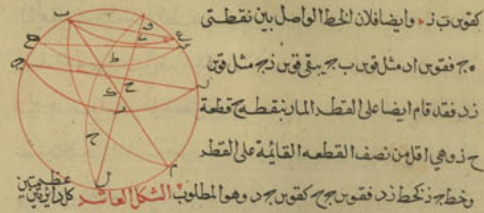 كقوس ب ز وايضا فلان الخط الواصل بين نقطتى
ه ج فقوس ا د مثل قوس ب ج يبقى قوس ز ج مثل قوس
ز د فقد قام ايضا على القطر المار بنقطه ج قطعة
ح ز وهى اقل من نصف القطعه القائمة على القطر
وخط ج ز كخط ز د فقوس ج ح كقوس ج د وهو المطلوب الشكل العاشر كل دايرتين عظيمتين